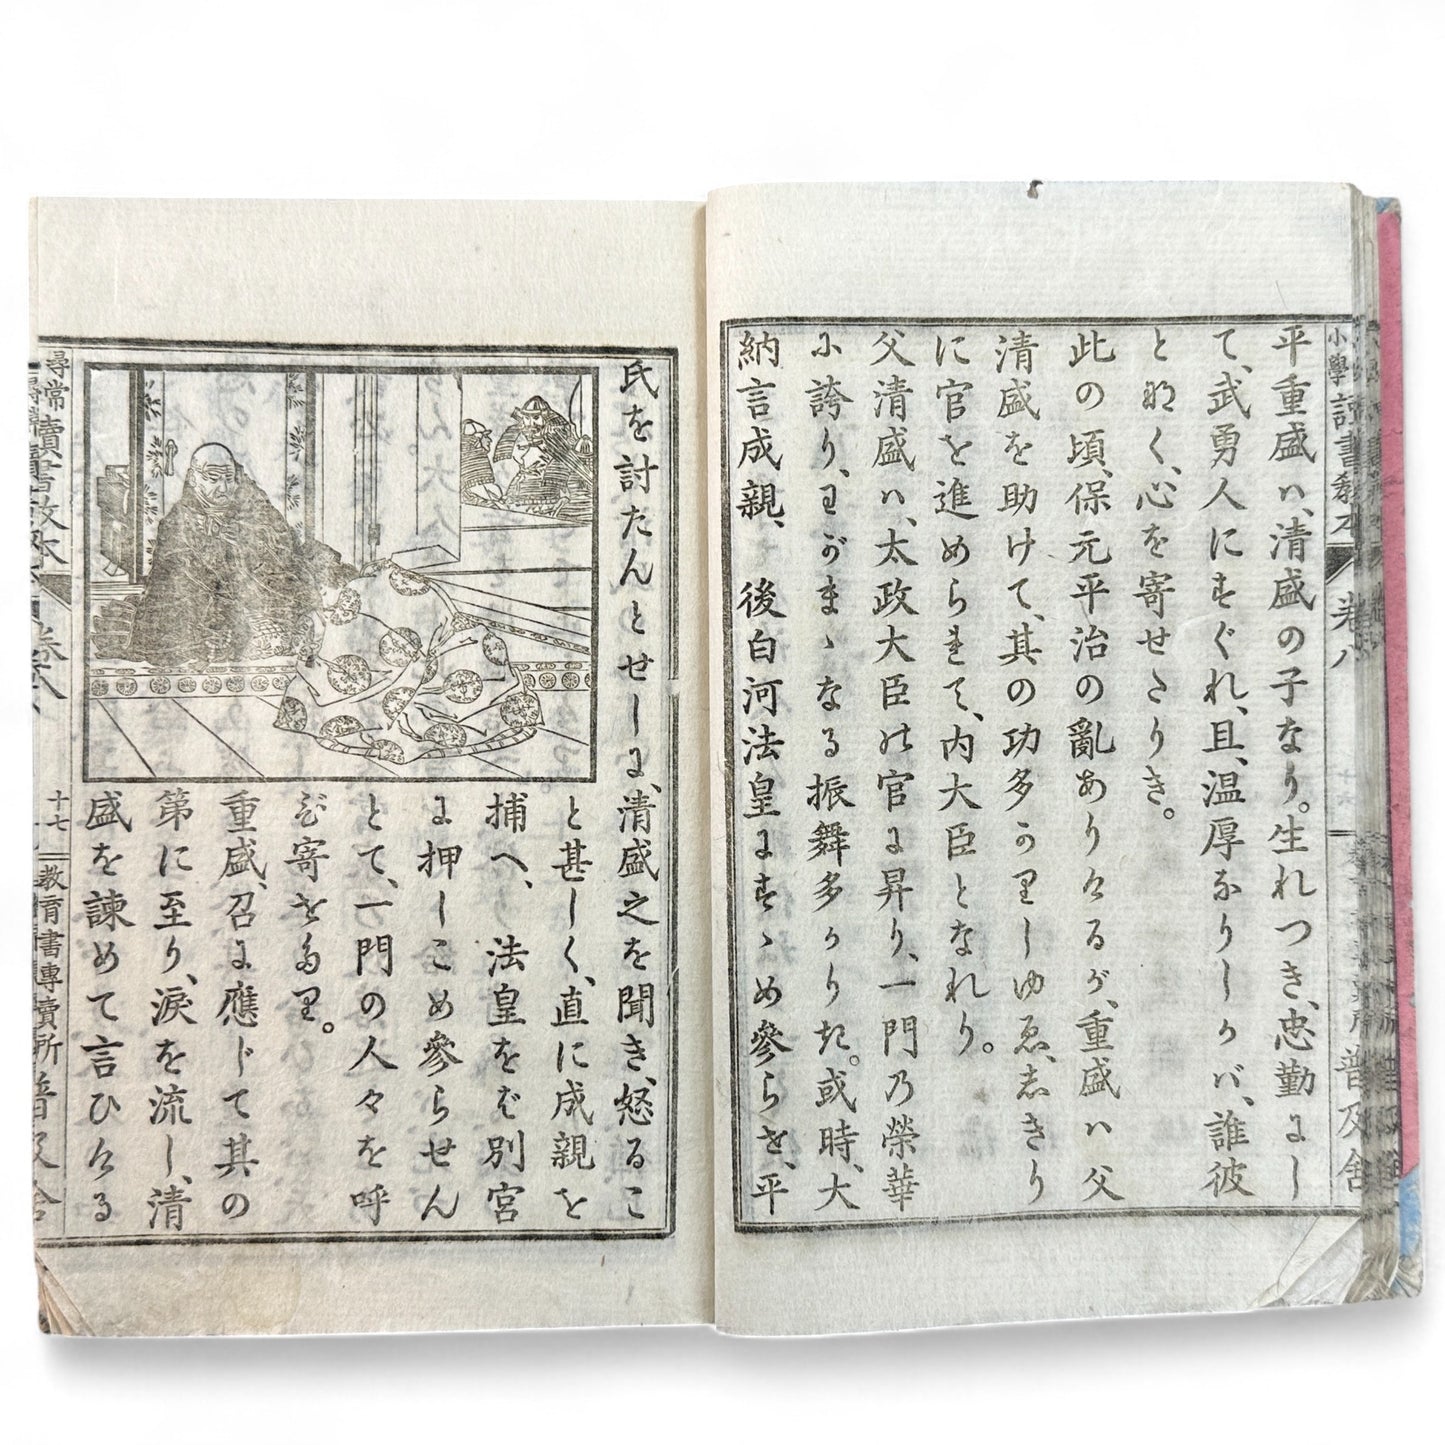 小學讀書教本 卷八 普及舎
平重盛ハ、清盛の子なり。生れつき、忠勤にし
て、武勇人にすぐれ、且、温厚なりしかバ、誰彼
となく、心を寄せたりき。
此の頃、保元平治の亂ありけるが、重盛ハ父
清盛を助けて、其の功多かりしゆゑ、志きり
に官を進められて、内大臣となれり。
父清盛ハ、太政大臣の官に昇り、一門の榮華
に誇り、わがまゝなる振舞多かりき。或時、大
納言成親、後白河法皇にすゝめ參らせ、平
氏を討たんとせしに、清盛之を聞き、怒るこ
と甚しく、直に成親を
捕へ、法皇をば別宮
に押しこめ參らせん
とて、一門の人々を呼
び寄せたり。
重盛、召に應じて其の
第に至り、涙を流し、清
盛を諫めて言ひける
尋常讀書教本 卷八 十七 教育書專賣所 普及舎